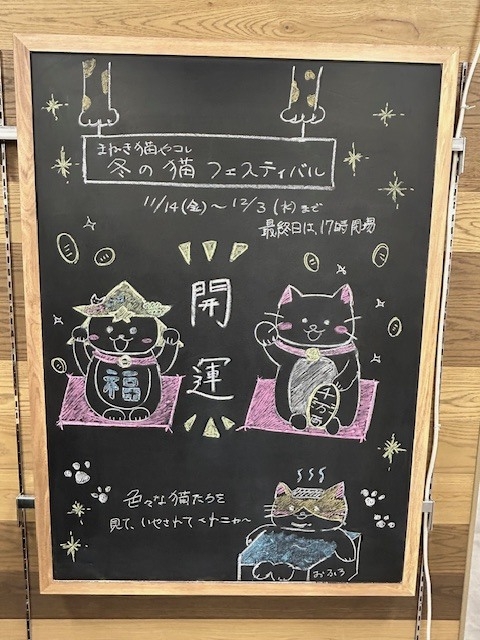 まねき猫やコレ
冬の猫フェスティバル
11/14(金)～12/3(水)まで
最終日は、17時閉場
開
運
福
千万両
色々な猫たちを
見て、いやされてくださニャ～
おふろ